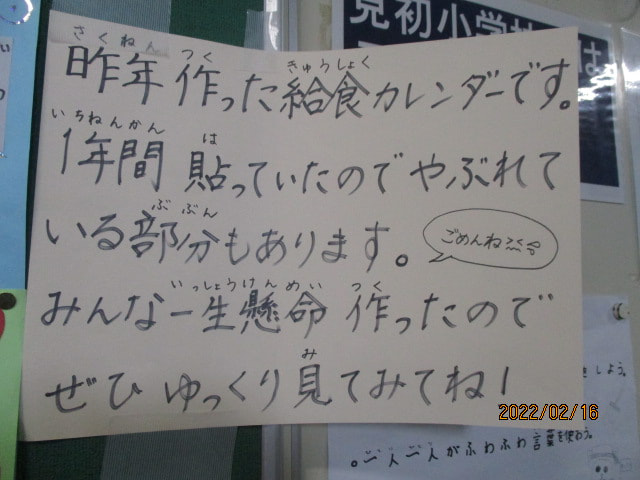 見初小学校は
さくねん つく きゅうしょく
昨年 作った給食カレンダーです。
いちねんかん は
1年間 貼っていたので やぶれて
ぶぶん
いる部分もあります。
ごめんね
いっしょうけんめい つく
みんな一生懸命 作ったので
み
ぜひ ゆっくり見てみてね！
しよう。
2022/02/16
一人一人がふわふわ言葉を使おう。